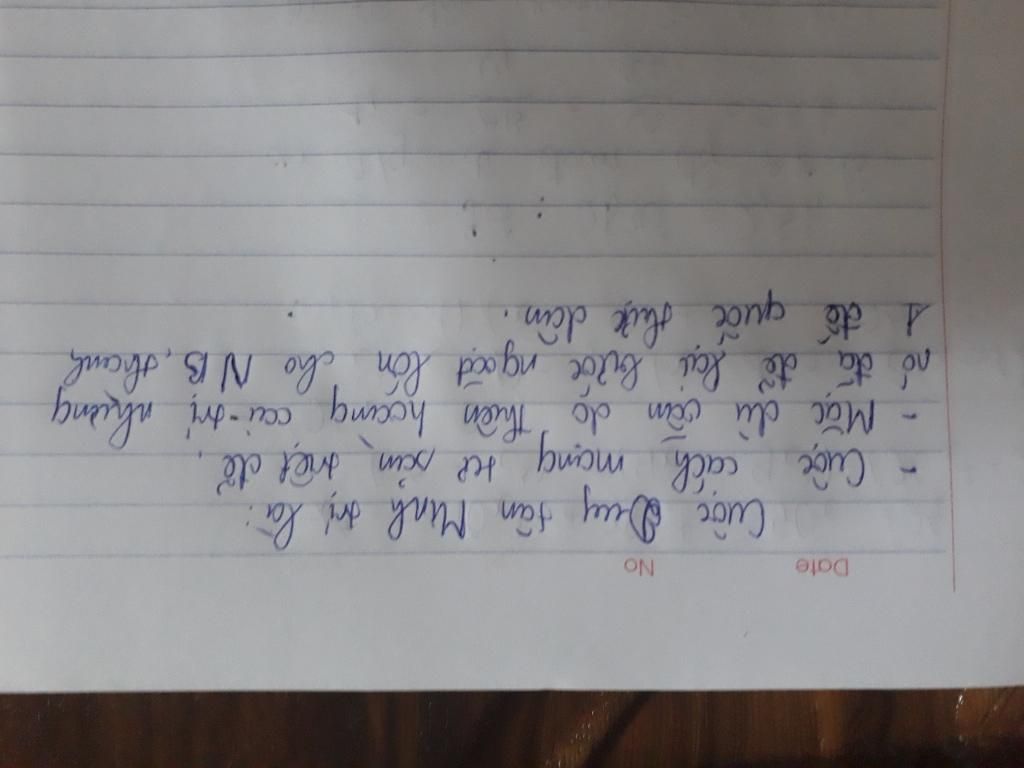 Date No
Cuộc Duy tân Minh trị là:
- Cuộc cách mạng ts sản triệt để.
- Mặc dù vẫn do Thiên hoàng cai-trị nhưng
nó đã để lại bước ngoặt lớn cho NB, thành
1 đế quốc thực dân.